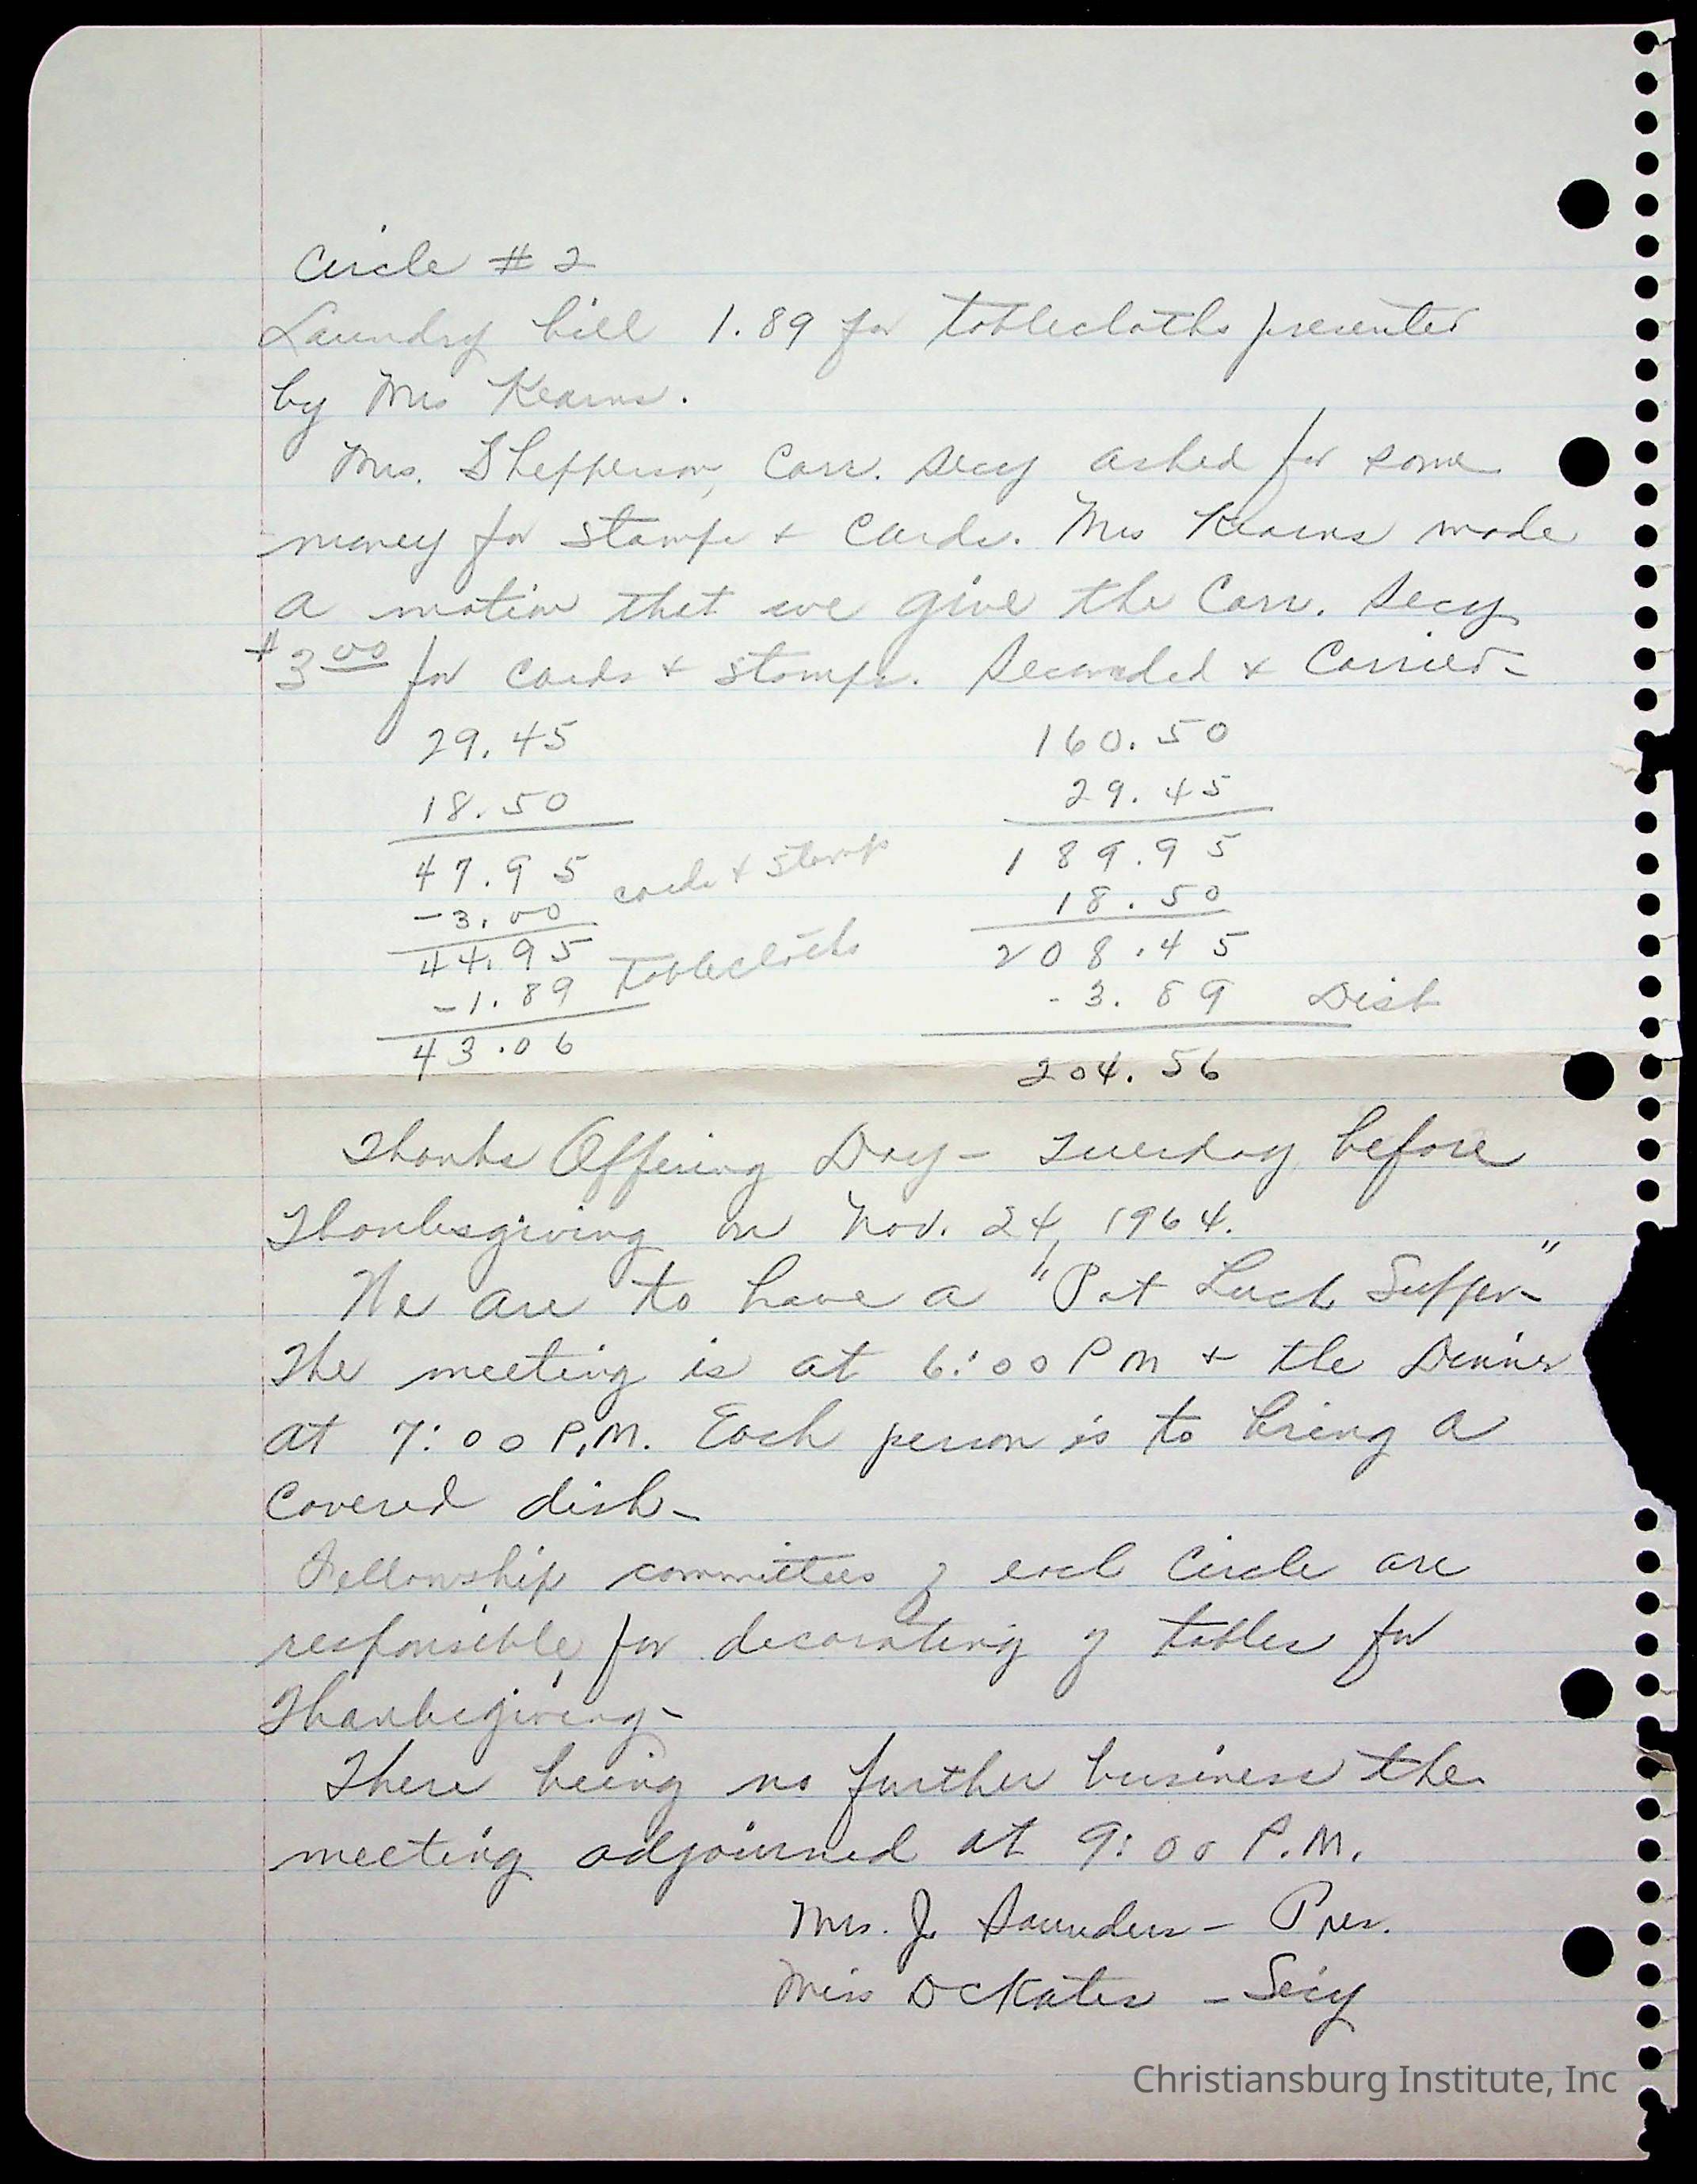 Circle # 2
Laundry bill 1.89 for tablecloths presented
by Mrs Kearns.
Mrs. Shepperson, Corr. Secy asked for some
money for stamps + Cards. Mrs Kearns made
a motion that we give the Corr. Secy
$3.00 for cards + stamps. Seconded + Carried-
29.45
18.50
47.95 cards + stamps
-3.00
44.95
-1.89 Tablecloths
43.06
160.50
29.45
189.95
18.50
208.45
- 3.89 Dist
204.56
Thanks Offering Day - Tuesday before
Thanksgiving on Nov. 24, 1964.
We are to have a "Pot Luck Supper-"
The meeting is at 6:00 PM + the Dinner
at 7:00 P.M. Each person is to bring a
Covered dish-
Fellowship committees of each Circle are
responsible for decorating of tables for
Thanksgiving-
There being no further business the
meeting adjourned at 9:00 P.M.
Mrs. J. Saunders - Pres.
Miss D Kates - Secy
Christiansburg Institute, Inc